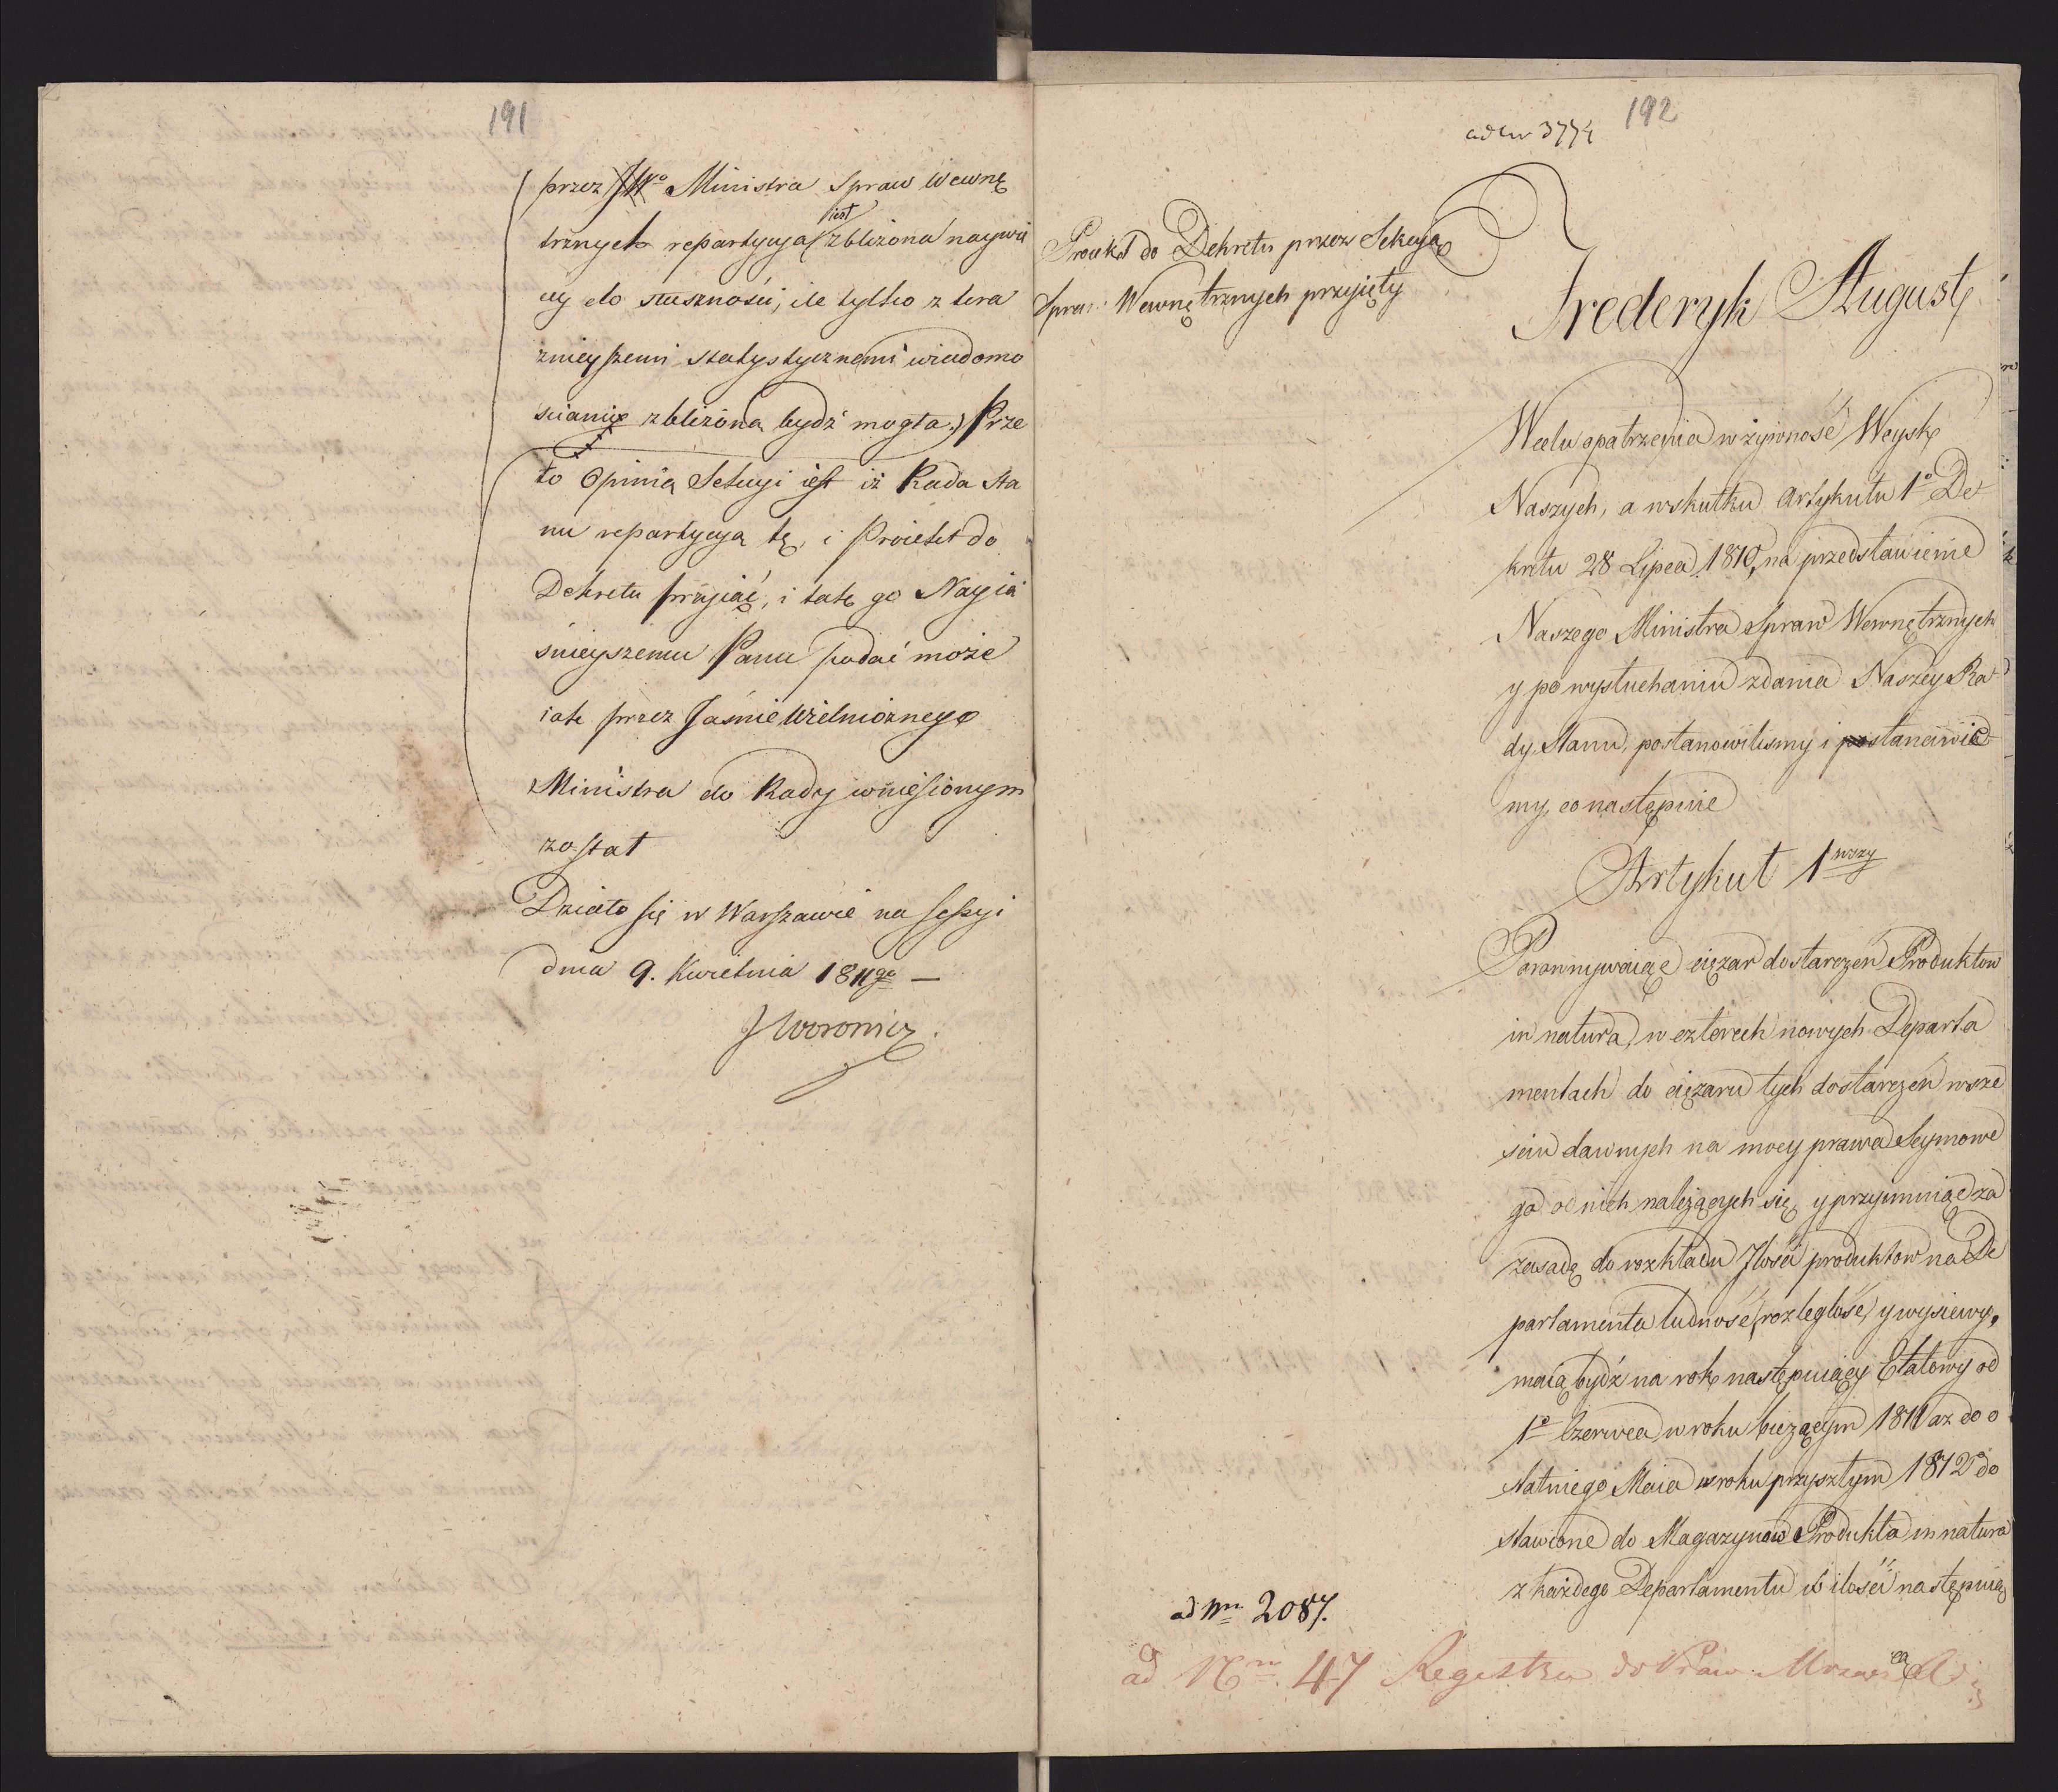 191
przez JWo Ministra Spraw Wewnę
trznych repartycya jest zbliżona naywię
cy do słuszności, ile tylko z tera
znieyszemi statystycznemi wiadomo
ściami zbliżona bydź mogła.) Prze
to Opinią Sekcyi iest iż Rada Sta
nu repartycyą tę, i Proiekt do
Dekretu przyiąć, i tak go Nayia
śnieyszemu Panu podać może
iak przez Jaśnie Wielmożnego
Ministra do Rady wniesionym
został
Działo się w Warszawie na Sessyi
dnia 9. Kwietnia 1811go —
J Woronicz
192
ad Nr 3774
Proiekt do Dekretu przez Sekcyą
Spraw Wewnętrznych przyięty
Frederyk August
W celu opatrzenia w żywność Woysk
Naszych, a w skutku Artykułu 1o De-
kretu 28 Lipca 1810, na przedstawienie
Naszego Ministra Spraw Wewnętrznych
y po wysłuchaniu zdania Naszey Ra-
dy Stanu, postanowiliśmy i stanowie-
my, co następuie
Artykuł 1wszy
Porownywaiąc ciężar dostarczeń Produktow
in natura, w czterech nowych Departa
mentach do ciężaru tych dostarczeń w sze
ściu dawnych na mocy prawa Seymowe
go od nich należących się, y przyimuiąc za
zasadę do rozkładu Jlości produktow na De
partamenta ludność, rozległość, y wysiewy,
maią bydź na rok następuiący Etatowy od
1o Czerwca w roku bieżącym 1811 aż do o
statniego Maia w roku przyszłym 1812 do
stawione do Magazynow Produkta in natura
z każdego Departamentu w ilości następuią
ad Nrm 2087.
ad Nrm 47 Registra do